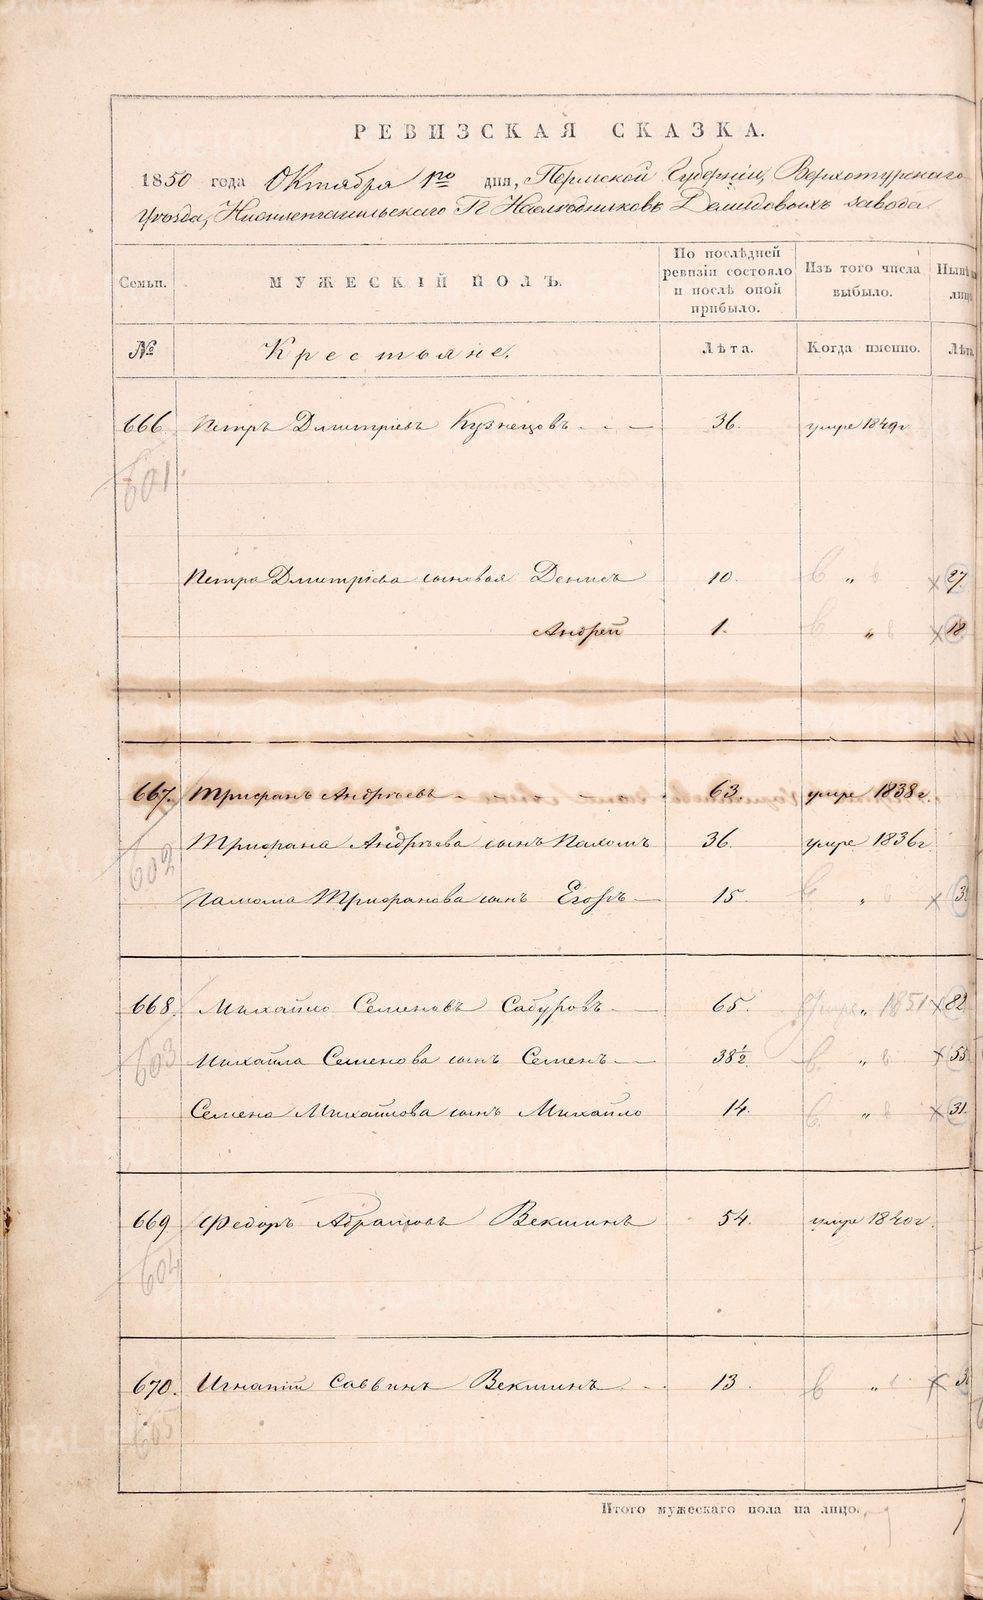 РЕВИЗСКАЯ СКАЗКА.
1850 года Октября 1го дня, Пермской Губерніи, Верхотурскаго
Уѣзда, Нижнетагильскаго Гг Наслѣдниковъ Демидовыхъ завода
Семьи. МУЖЕСКІЙ ПОЛЪ. По послѣдней ревизіи состояло и послѣ оной прибыло. Изъ того числа выбыло.
№ Крестьяне. Лѣта. Когда именно. Лѣта
666 Петръ Дмитріевъ Кузнецовъ 36. умре 1849г
601
Петра Дмитріева сыновья Денисъ 10. " 27.
Андрей 1. " 18
667. Трифанъ Андрѣевъ 63. умре 1838г.
602 Трифана Андрѣева сынъ Пахомъ 36. умре 1836г.
Пахома Трифанова сынъ Егоръ 15. "
668. Михайло Семеновъ Сабуровъ 65. умре 1851 82
603 Михайла Семенова сынъ Семенъ 38½. " 55
Семена Михайлова сынъ Михайло 14. " 31.
669 Федоръ Абрамовъ Векшинъ 54. умре 1840г.
604
670. Игнатій Саввинъ Векшинъ 13. "
605
Итого мужескаго пола на лицо.
METRIKI.GASO-URAL.RU